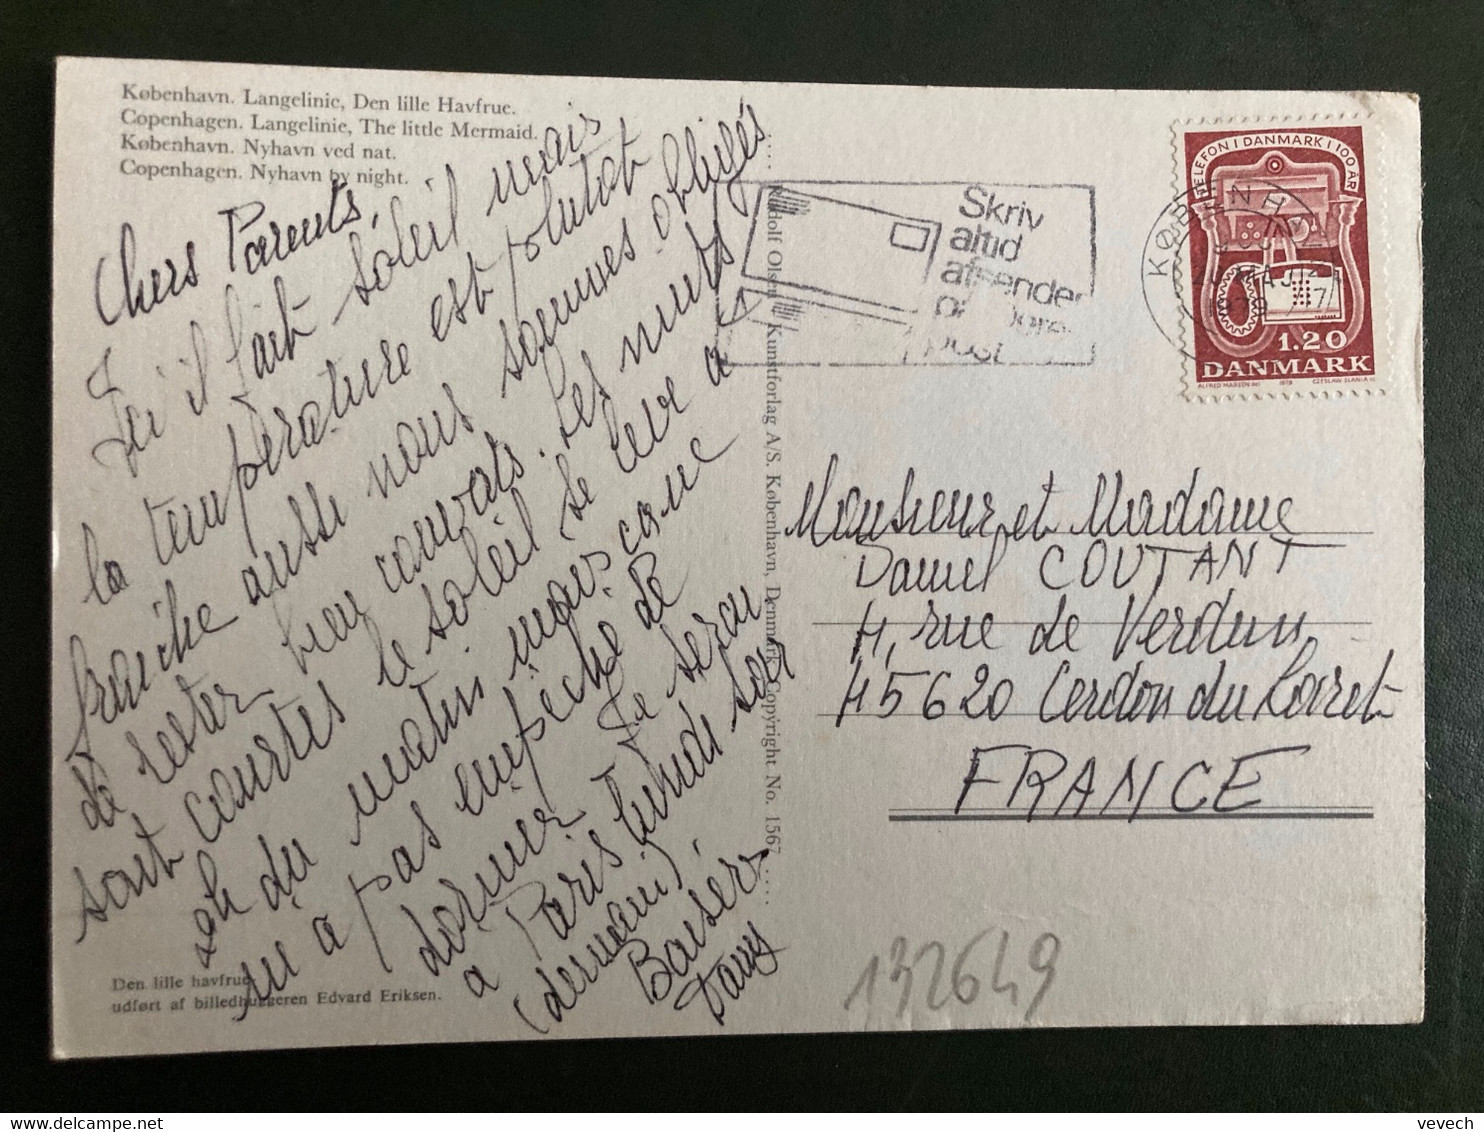 København. Langelinie, Den lille Havfrue.
Copenhagen. Langelinie, The little Mermaid.
København. Nyhavn ved nat.
Copenhagen. Nyhavn by night.
Chers Parents,
Ici il fait soleil mais
la température est plutôt
fraîche aussi nous sommes obligés
de rester bien couverts. Les nuits
sont courtes le soleil se lève à
du matin mais cane
m'a pas empêché de
dormir. Je serai
à Paris lundi soir
(demain).
Baisers
Dany
Den lille havfrue
udført af billedhuggeren Edvard Eriksen.
Rudolf Olsens Kunstforlag A/S. København, Denmark. Copyright No. 1567
Skriv
altid
afsender
på
post
KØBENHAVN
1979
TELEFON I DANMARK I 100 ÅR
1.20
DANMARK
ALFRED MADSEN INV. 1979 CZESLAW SLANIA SC.
Monsieur et Madame
Daniel COUTANT
4, rue de Verdun
45620 Cerdon du Loiret
FRANCE
132649
vevech